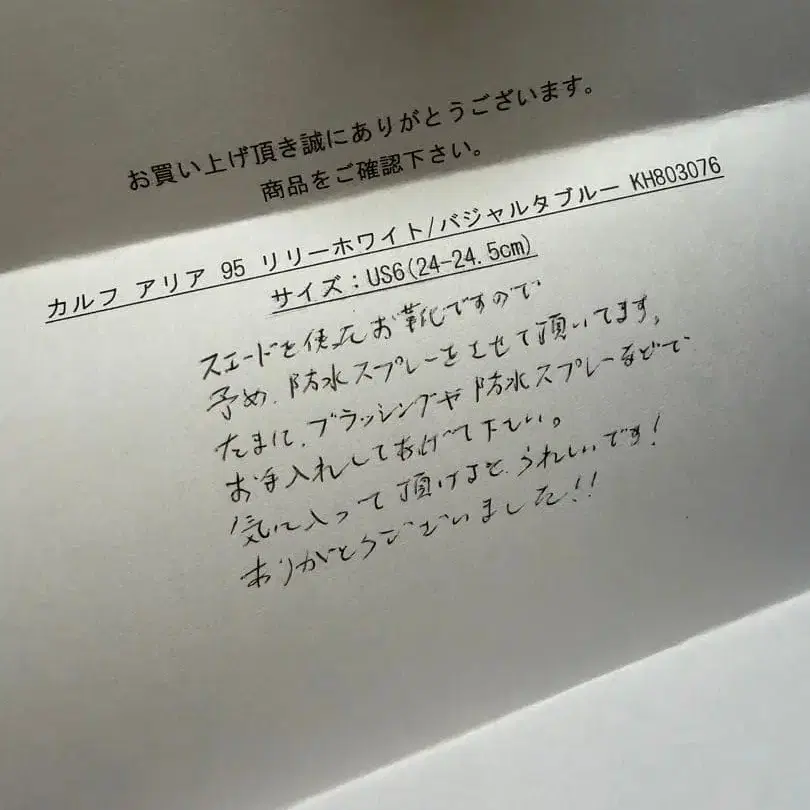 お買い上げ頂き誠にありがとうございます。
商品をご確認下さい。
カルフ アリア 95 リリーホワイト/バジャルタブルー KH803076
サイズ：US6(24-24.5cm)
スエードを使ったお靴ですので
予め、防水スプレーをさせて頂いてます。
たまに、ブラッシングや防水スプレーなどで
お手入れしてあげて下さい。
気に入って頂けると、うれしいです！
ありがとうございました!!